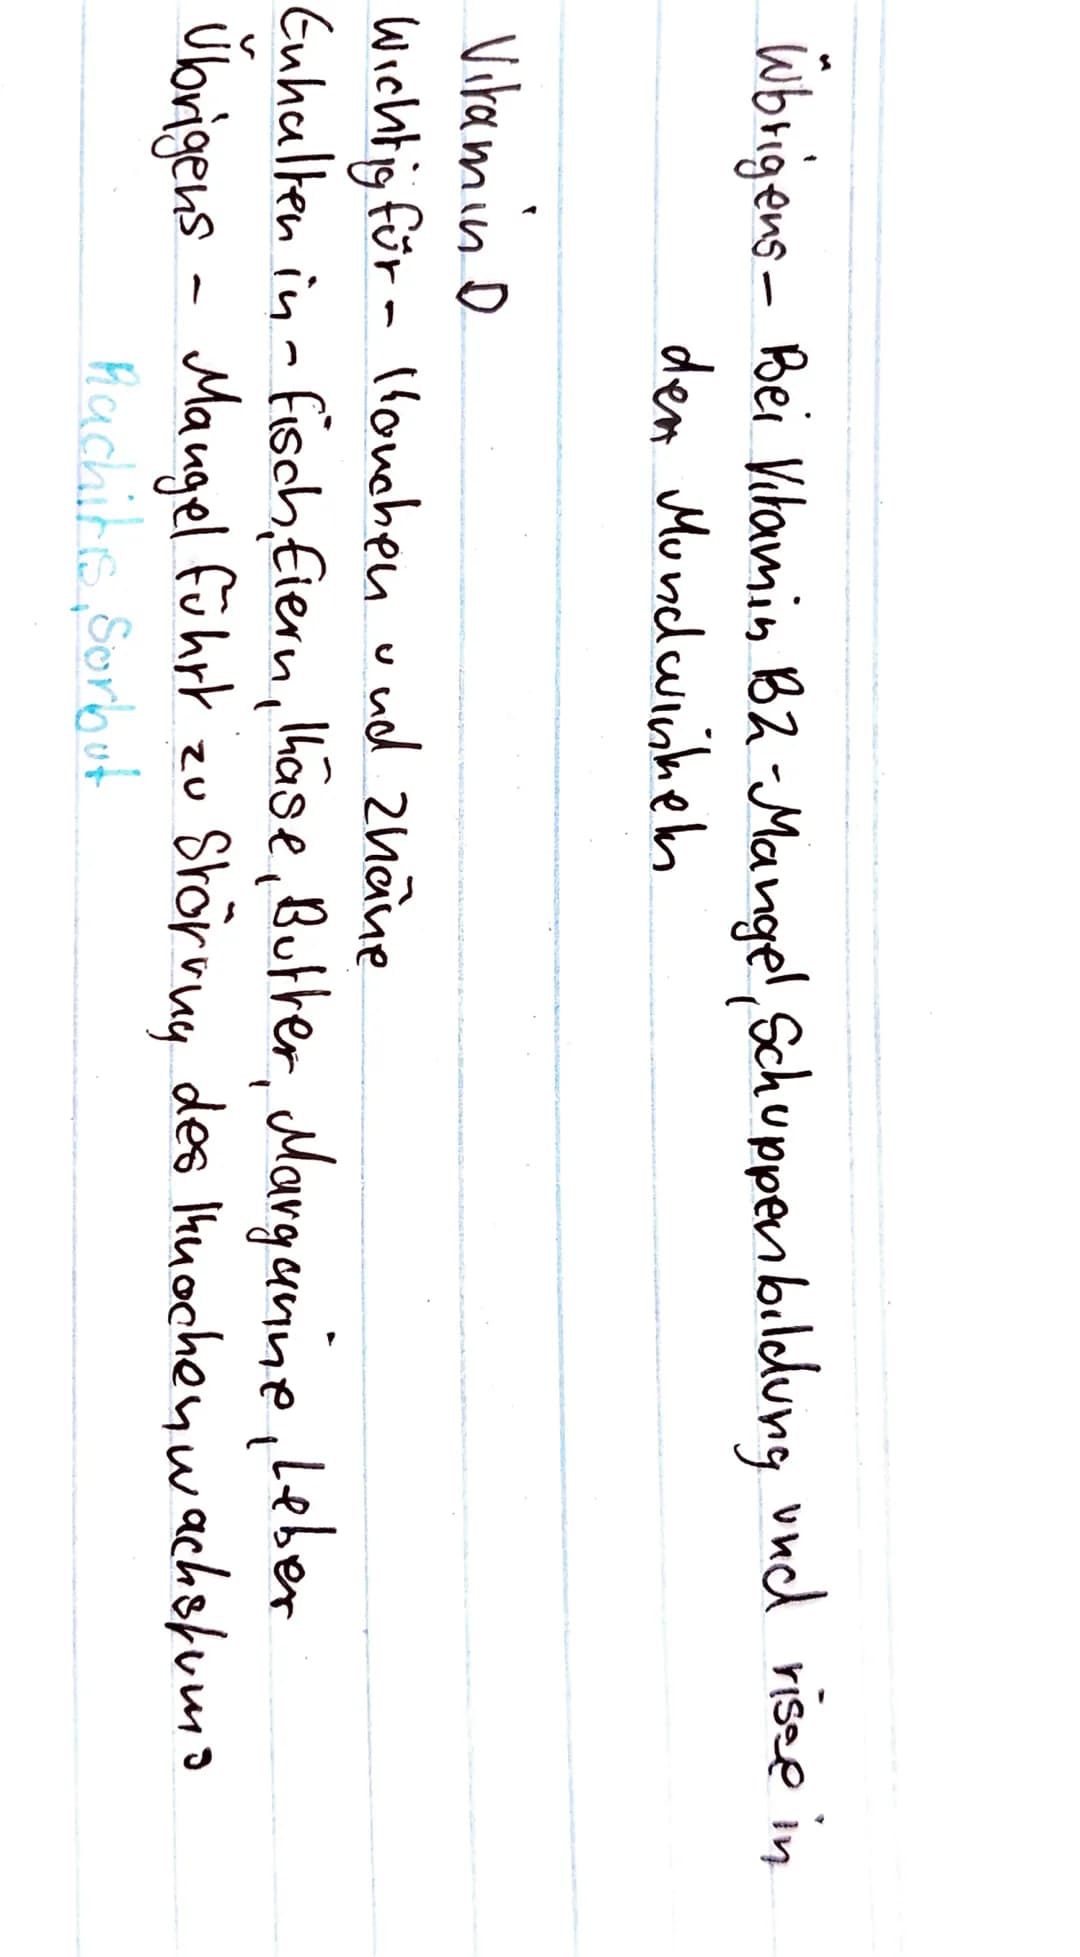 Übrigens - Bei Vitamin B2 - Mangel, Schuppenbildung und risse in
den Mundwinkeln
Vitamin D
Wichtig für - Konochen und Zhäne
Enhalten in - Fisch, Eiern, Käse, Butter, Margarine, Leber
Übrigens - Mangel führt zu Störung des Knochenwachstums
Rachitis, Sorbut